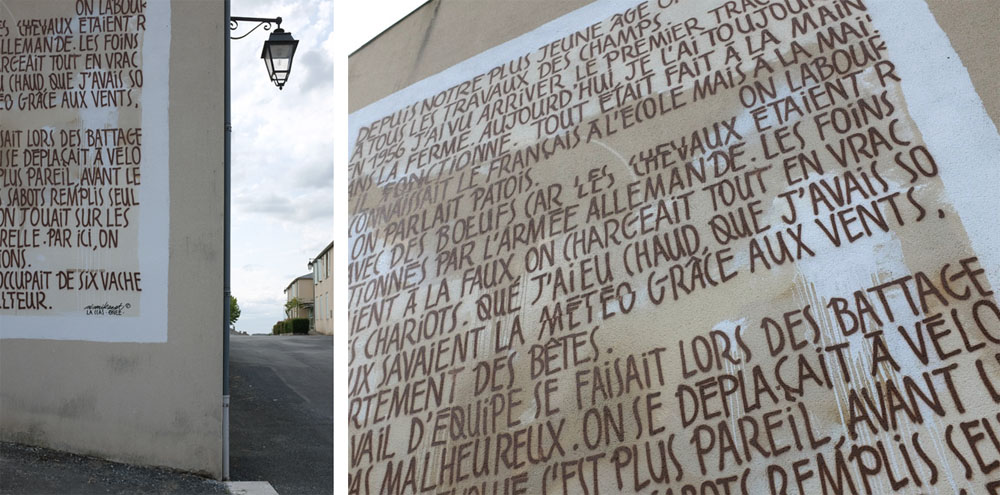 ON LABOUR
ES CHEVAUX ÉTAIENT R
ALLEMANDE. LES FOINS
ARGEAIT TOUT EN VRAC
U CHAUD, QUE J'AVAIS SO
ÉO GRÂCE AUX VENTS,
SAIT LORS DES BATTAGE
N SE DEPLAÇAIT À VÉLO
PLUS PAREIL AVANT LE
SABOTS REMPLIS SEUL
ON JOUAIT SUR LES
RELLE. PAR ICI, ON
IONS.
OCCUPAIT DE SIX VACHE
LTEUR.
DEPUIS NOTRE PLUS JEUNE ÂGE O
TOUS LES TRAVAUX DES CHAMPS
EN 1956 J'AI VU ARRIVER LE PREMIER TRAC
ANS LA FERME AUJOURD'HUI JE L'AI TOUJOUR
IL FONCTIONNE. TOUT ÉTAIT FAIT À LA MAIN
CONNAISSAIT LE FRANÇAIS À L'ECOLE MAIS À LA MAI
ON PARLAIT PATOIS ON LABOUR
AVEC DES BOEUFS CAR LES CHEVAUX ÉTAIENT R
TIONNÉS PAR L'ARMÉE ALLEMANDE. LES FOINS
IENT À LA FAUX ON CHARGEAIT TOUT EN VRAC
S CHARIOTS. QUE J'AI EU CHAUD, QUE J'AVAIS SO
UX SAVAIENT LA MÉTÉO GRÂCE AUX VENTS,
RTEMENT DES BÊTES.
VAIL D'ÉQUIPE SE FAISAIT LORS DES BATTAGE
AS MALHEUREUX. ON SE DEPLAÇAIT À VÉLO
QUE C'EST PLUS PAREIL AVANT L
SABOTS REMPLIS SEU